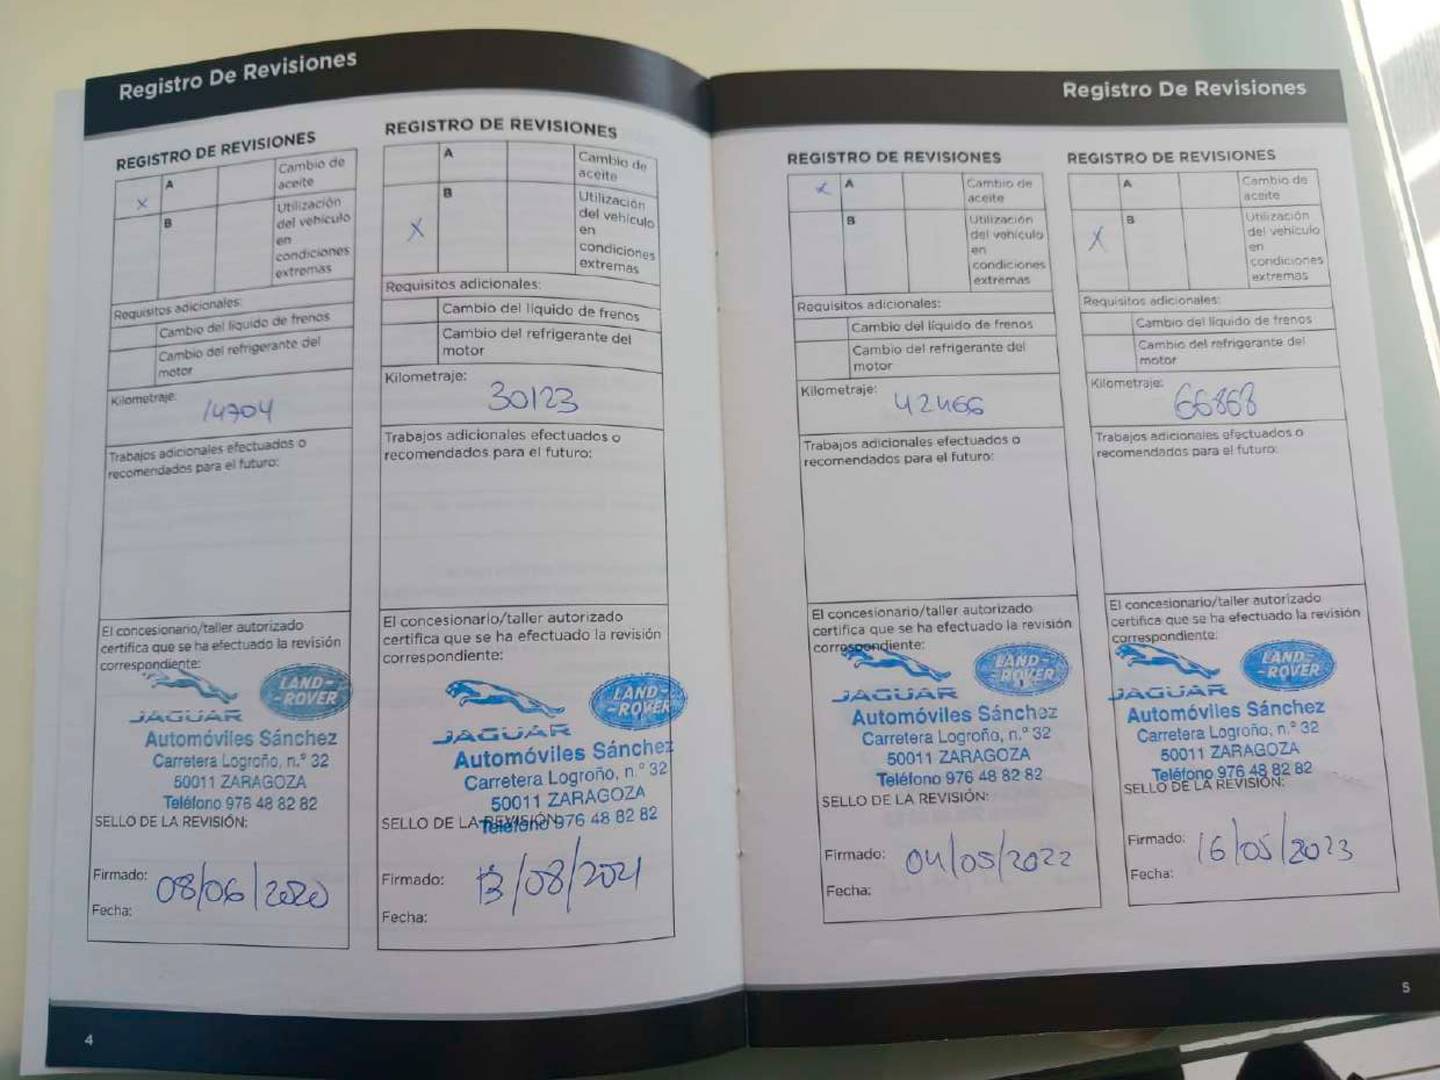 Registro De Revisiones
REGISTRO DE REVISIONES
X
A
Cambio de
aceite
B
Utilización
del vehículo
en
condiciones
extremas
Requisitos adicionales:
Cambio del líquido de frenos
Cambio del refrigerante del
motor
Kilometraje:
14704
Trabajos adicionales efectuados o
recomendados para el futuro:
El concesionario/taller autorizado
certifica que se ha efectuado la revisión
correspondiente:
JAGUAR
LAND-
-ROVER
Automóviles Sánchez
Carretera Logroño, n.º 32
50011 ZARAGOZA
Teléfono 976 48 82 82
SELLO DE LA REVISIÓN:
Firmado:
08/06/2020
Fecha:
REGISTRO DE REVISIONES
A
Cambio de
aceite
X
B
Utilización
del vehículo
en
condiciones
extremas
Requisitos adicionales:
Cambio del líquido de frenos
Cambio del refrigerante del
motor
Kilometraje:
30123
Trabajos adicionales efectuados o
recomendados para el futuro:
El concesionario/taller autorizado
certifica que se ha efectuado la revisión
correspondiente:
JAGUAR
LAND-
-ROVER
Automóviles Sánchez
Carretera Logroño, n.º 32
50011 ZARAGOZA
Teléfono 976 48 82 82
SELLO DE LA REVISIÓN:
Firmado:
13/08/2021
Fecha:
4
Registro De Revisiones
REGISTRO DE REVISIONES
X
A
Cambio de
aceite
B
Utilización
del vehículo
en
condiciones
extremas
Requisitos adicionales:
Cambio del líquido de frenos
Cambio del refrigerante del
motor
Kilometraje:
42466
Trabajos adicionales efectuados o
recomendados para el futuro:
El concesionario/taller autorizado
certifica que se ha efectuado la revisión
correspondiente:
JAGUAR
LAND-
-ROVER
Automóviles Sánchez
Carretera Logroño, n.º 32
50011 ZARAGOZA
Teléfono 976 48 82 82
SELLO DE LA REVISIÓN:
Firmado:
04/05/2022
Fecha:
REGISTRO DE REVISIONES
A
Cambio de
aceite
X
B
Utilización
del vehículo
en
condiciones
extremas
Requisitos adicionales:
Cambio del líquido de frenos
Cambio del refrigerante del
motor
Kilometraje:
66868
Trabajos adicionales efectuados o
recomendados para el futuro:
El concesionario/taller autorizado
certifica que se ha efectuado la revisión
correspondiente:
JAGUAR
LAND-
-ROVER
Automóviles Sánchez
Carretera Logroño, n.º 32
50011 ZARAGOZA
Teléfono 976 48 82 82
SELLO DE LA REVISIÓN:
Firmado:
16/05/2023
Fecha:
5